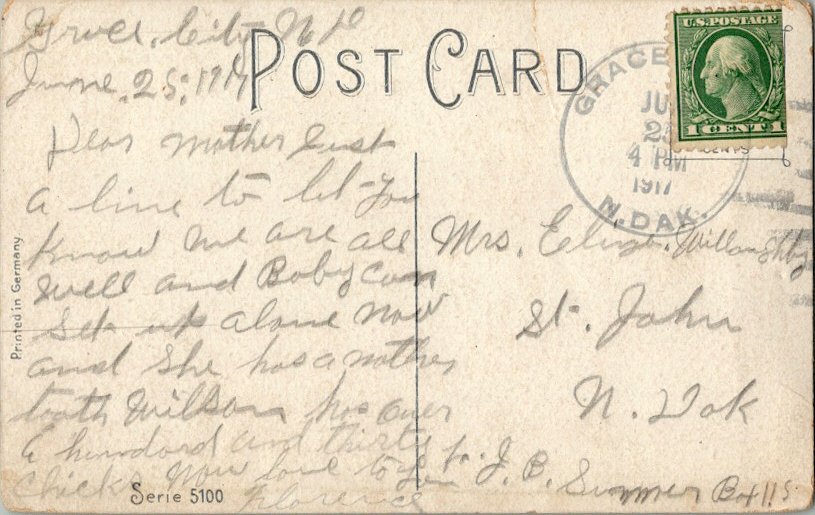 Grace City N D
June. 25, 1917
POST CARD
U.S. POSTAGE
1 CENT 1
CENTS
GRACE
JU
2
4 PM
1917
N. DAK.
Dear Mother Just
a line to let you
know we are all
well and Baby can
set up alone now
and she has a nother
tooth Willson has over
a hundord and thirty
chicks Now love to you
Florence
Mrs. Eliza. Willoughby
St. John
N. Dak
J. B. Summer Box 115
Printed in Germany
Serie 5100